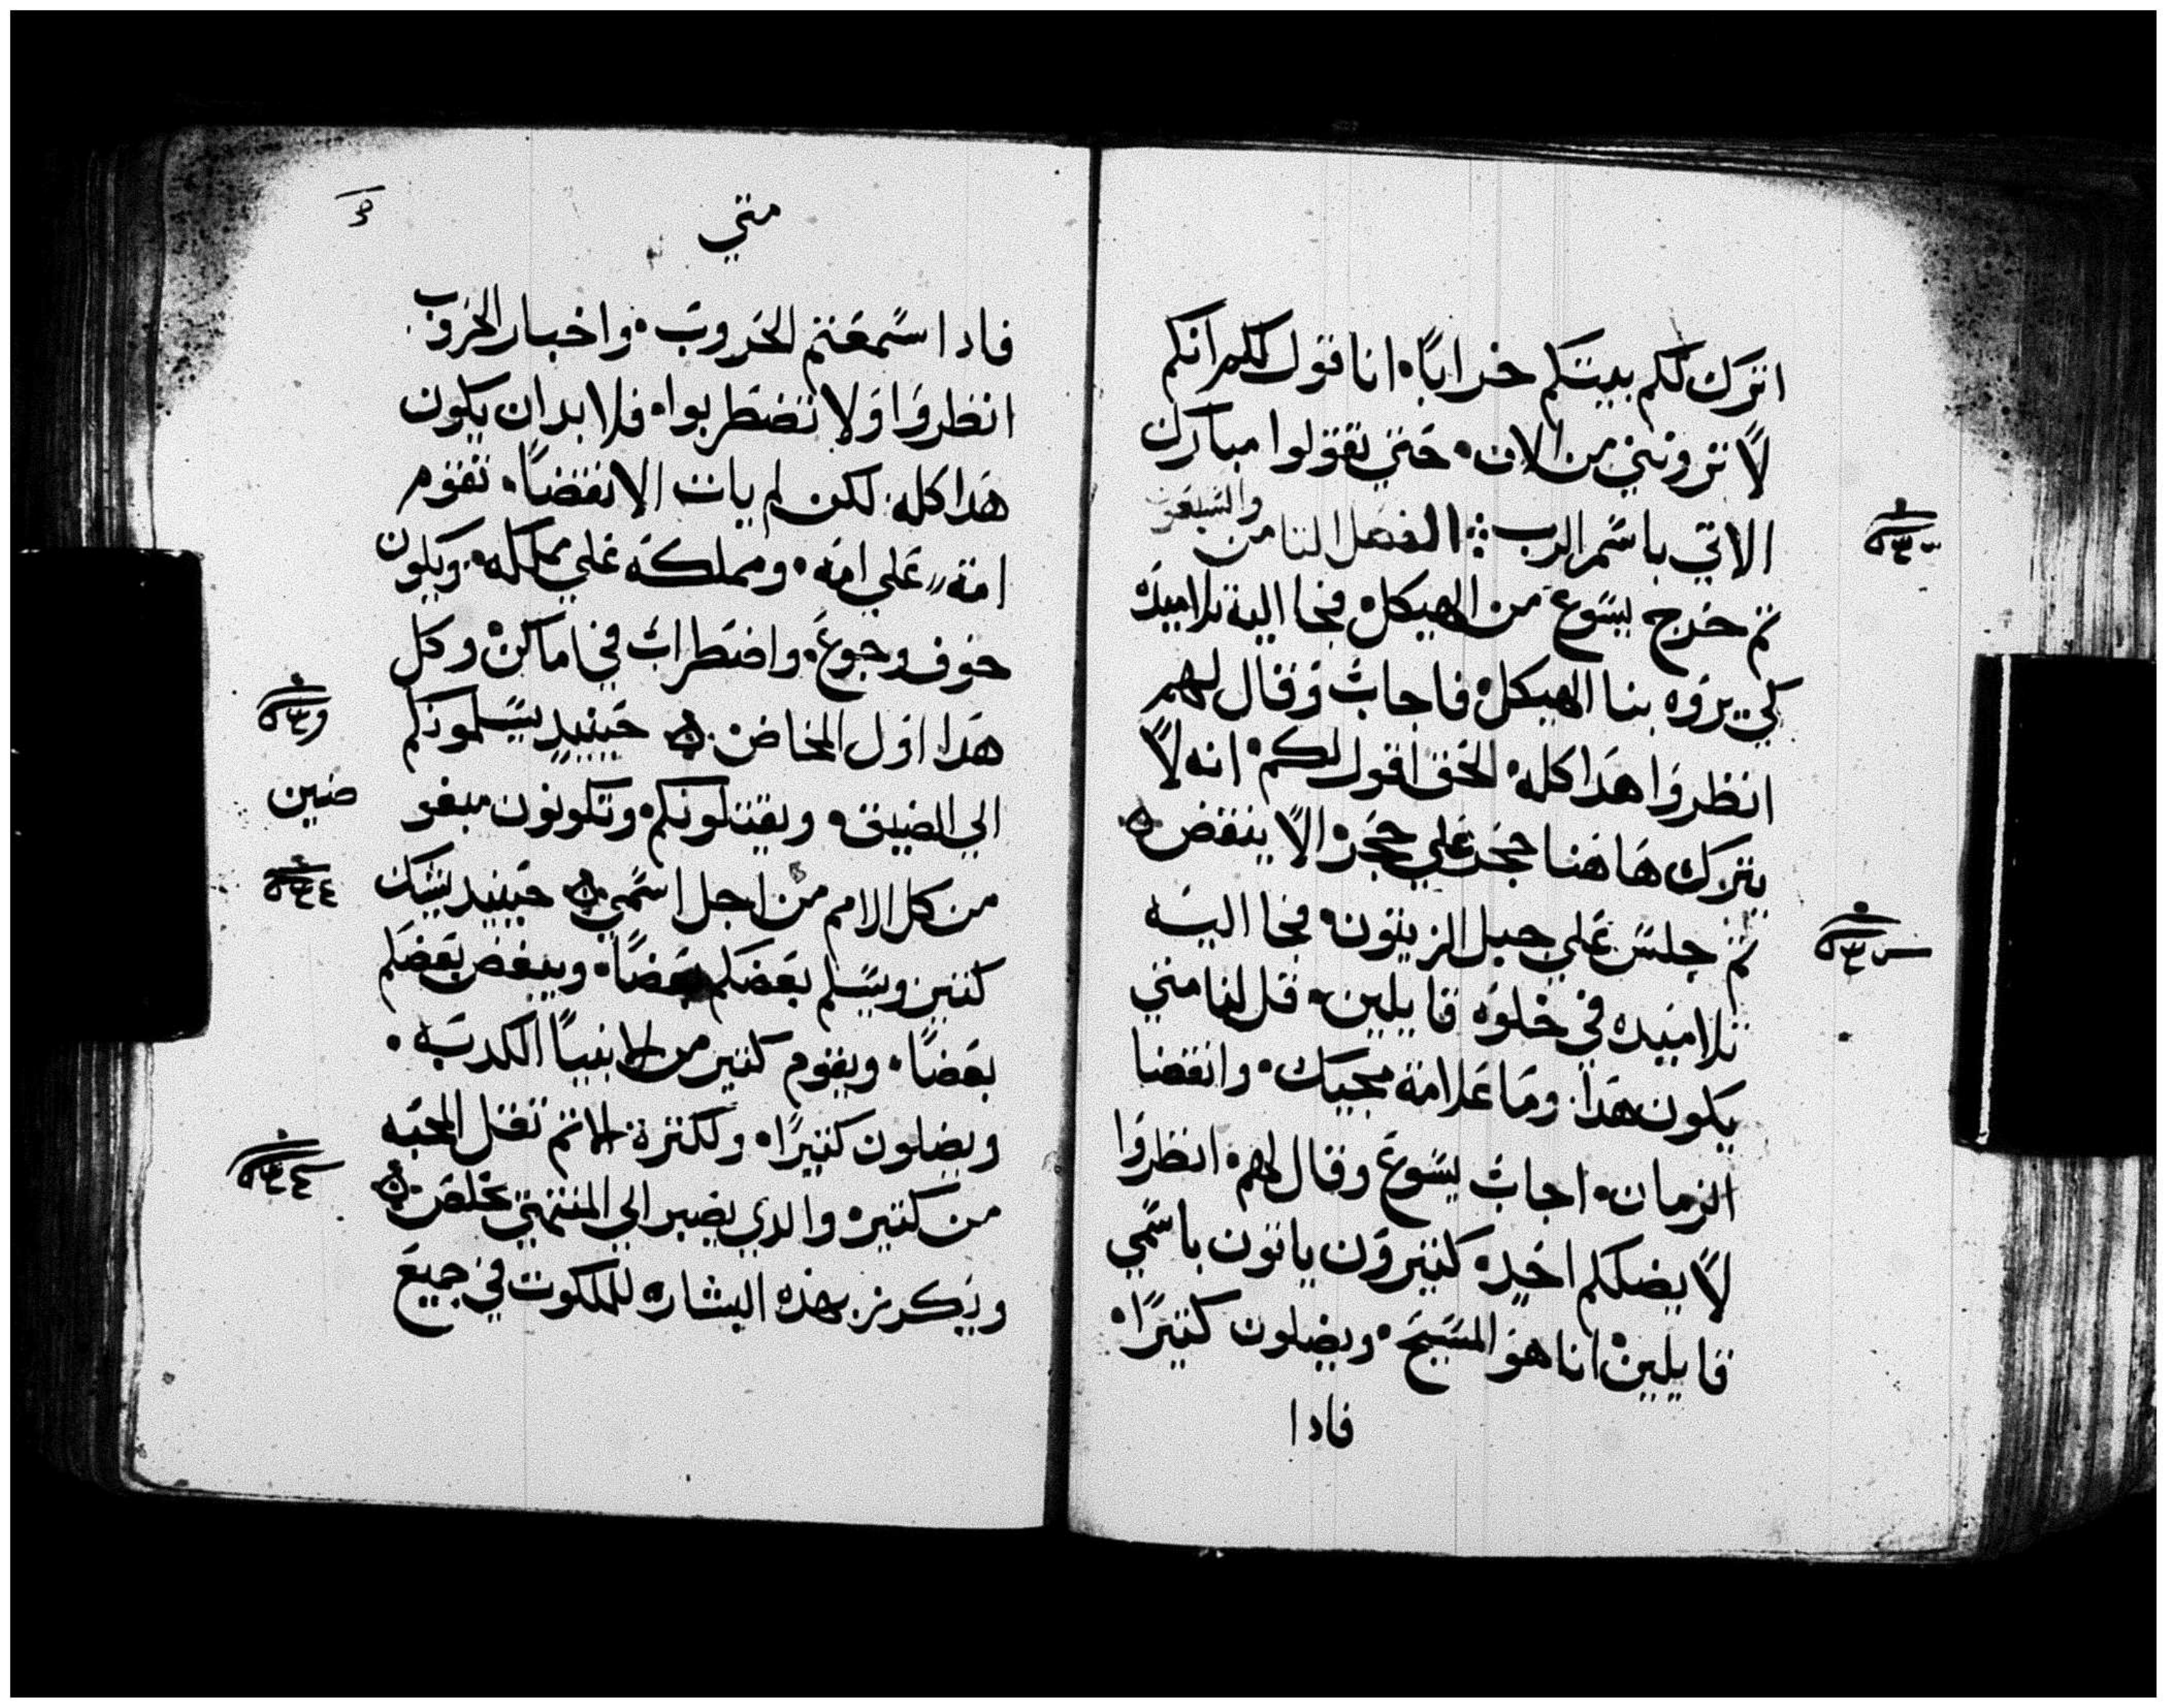 اترك لكم بيتكم خرابًا انا اقول لكم انكم
لا تروني من الان حتي تقولوا مبارك
الاتي باسم الرب الفصل الثامن والسبعون
ثم خرج يسوع من الهيكل فجا اليه تلاميذه
كي يروه بنا الهيكل فاجاب وقال لهم
انظروا هدا كله الحق اقول لكم انه لا
يترك هاهنا حجر علي حجر الا ينقض
ثم جلس علي جبل الزيتون فجا اليه
تلاميده في خلوه قايلين قل لنا متي
يكون هدا وما علامة مجيك وانقضا
الزمان اجاب يسوع وقال لهم انظروا
لا يضلكم احد كثيرون ياتون باسمي
قايلين انا هو المسيح ويضلون كثيرًا
فادا
متي
فادا سمعتم الحروب واخبار الحروب
انظروا ولا تضطربوا فلا بد ان يكون
هدا كله لكن لم يات الانقضا تقوم
امة علي امه ومملكه علي مملكه ويكون
خوف وجوع واضطراب في اماكن وكل
هدا اول المخاض حينيد يسلمونكم
الي الضيق ويقتلونكم وتكونون مبغو
ضين
من كل الامم من اجل اسمي حينيد يشك
كثير ويسلم بعضكم بعضًا ويبغض بعضكم
بعضًا ويقوم كثير من الانبيا الكدبه
ويضلون كثيرًا ولكثرة الاثم تقل المحبه
من كثير والدي يصبر الي المنتهي يخلص
ويكرز بهذه البشاره للملكوت في جميع